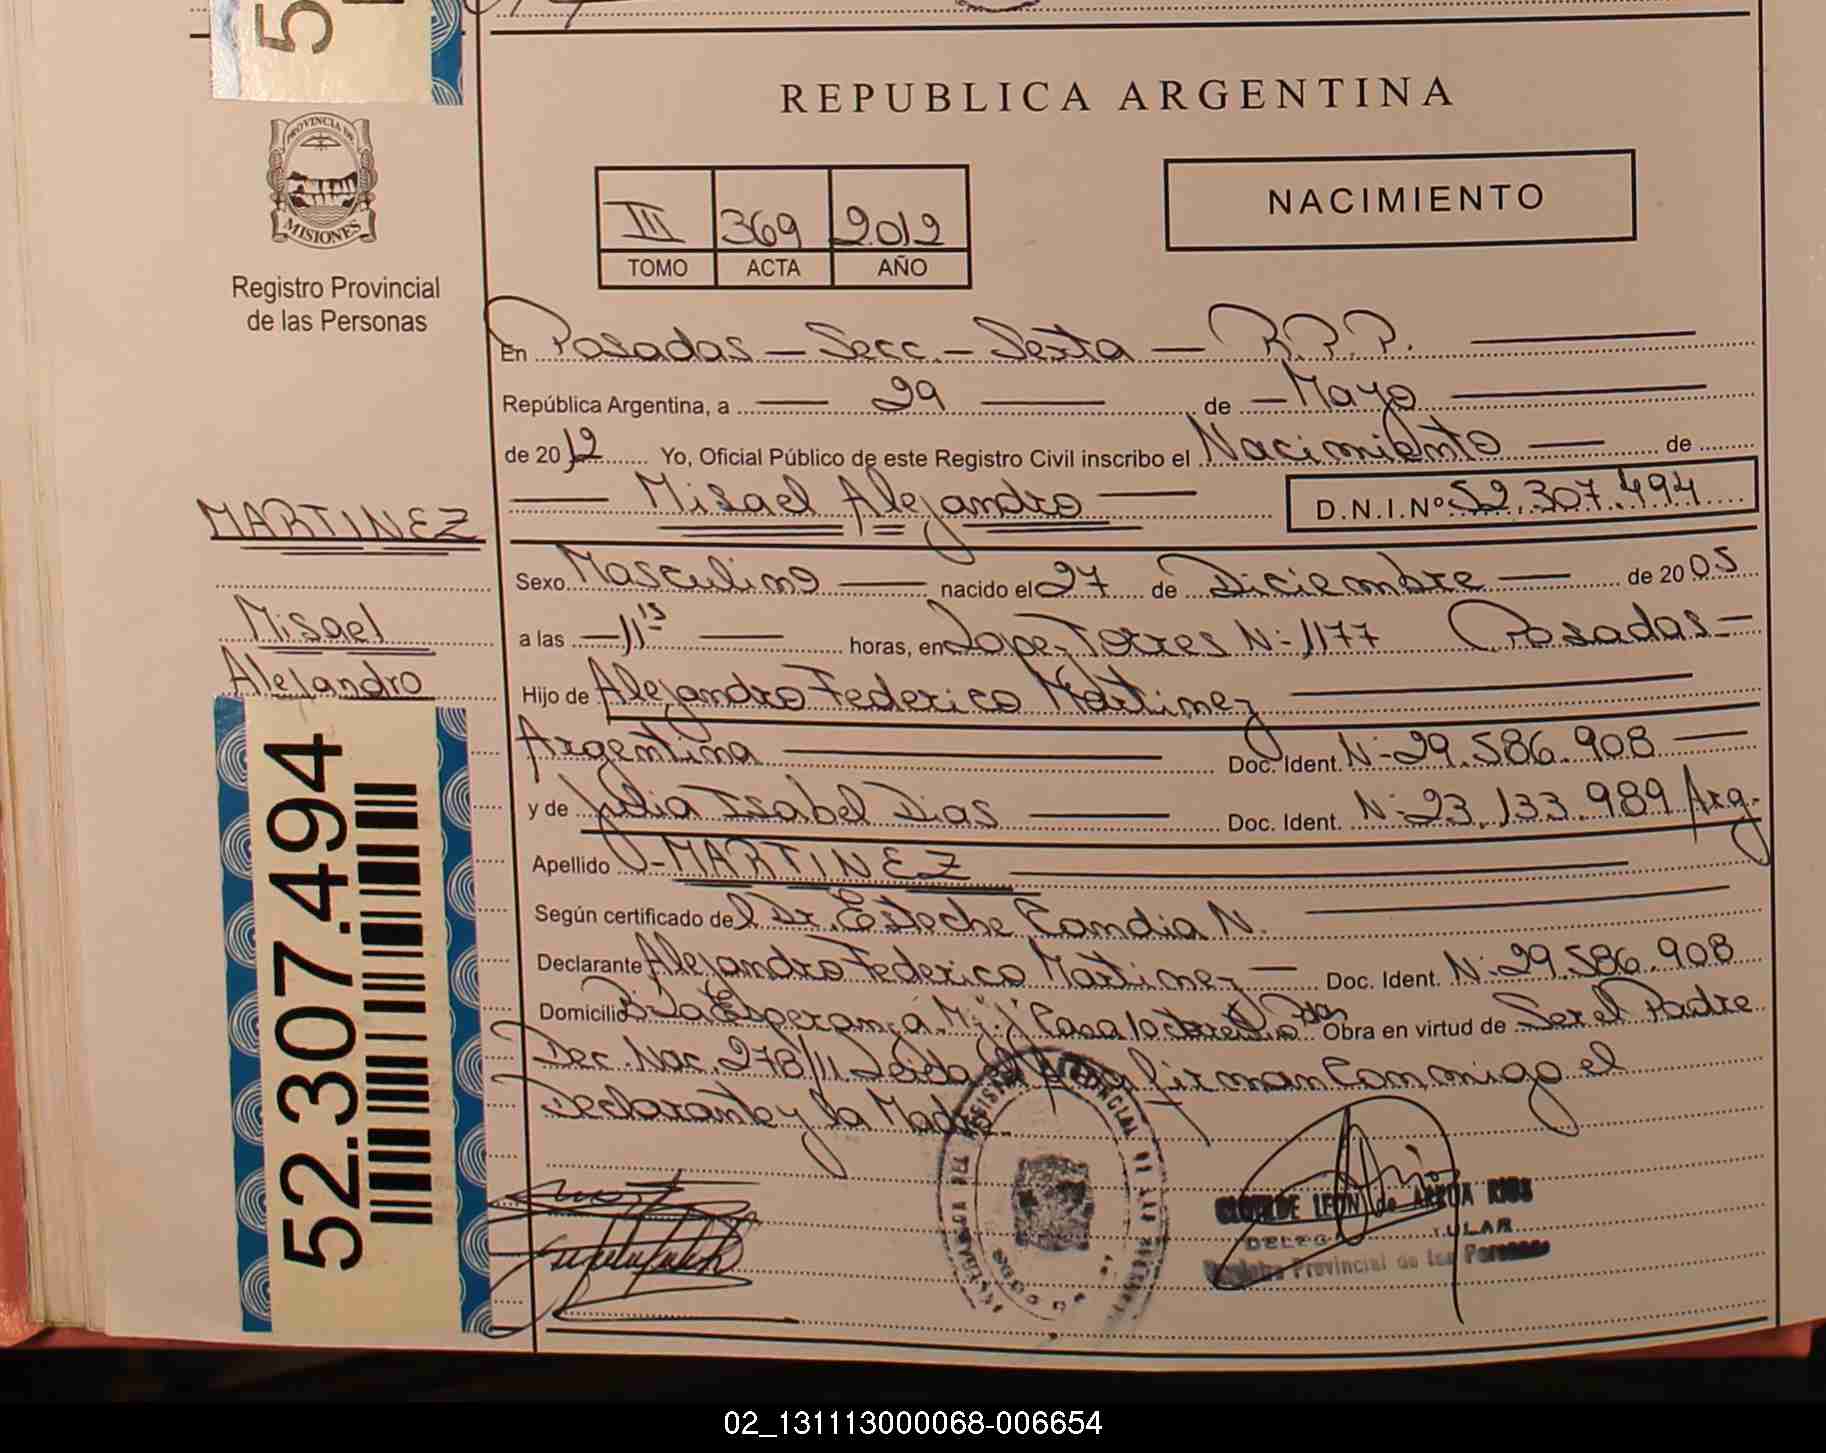 REPUBLICA ARGENTINA
PROVINCIA DE
MISIONES
Registro Provincial
de las Personas
III 369 2012
TOMO ACTA AÑO
NACIMIENTO
En Posadas - Secc. - Sexta - R.P.P.
República Argentina, a 29 de Mayo
de 2012 Yo, Oficial Público de este Registro Civil inscribo el Nacimiento de
Misael Alejandro D.N.I.Nº 52.307.494
MARTINEZ
Misael
Alejandro
52.307.494
Sexo Masculino nacido el 27 de Diciembre de 2005
a las 11 15 horas, en Lopez Torres N: 1177 Posadas
Hijo de Alejandro Federico Martinez
Argentina Doc. Ident. N: 29.586.908
y de Julia Isabel Dias Doc. Ident. N: 23.133.989 Arg.
Apellido MARTINEZ
Según certificado del Dr. Esteche Candia N.
Declarante Alejandro Federico Martinez Doc. Ident. N: 29.586.908
Domicilio Bº La Esperanza Casa Obra en virtud de Ser el Padre
Dec. Nac. 278/11 Leida el Acta firman Conmigo el
Declarante y la Madre.
CLOTILDE LEON de RIOS
Registro Provincial de las Personas
02_131113000068-006654